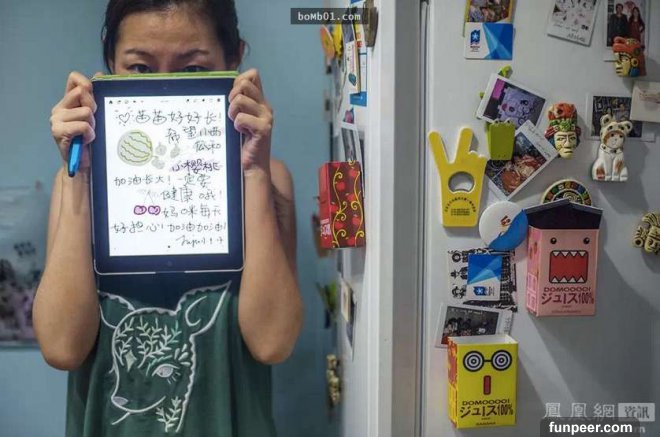 bomb01.com
苗苗好好长!
希望小西
瓜和
小樱桃
加油长大!一定要
健康哦!
妈咪每天
好担心!加油加油!
DOMOOOO!
ジュース100%
DOMOOOO!
ジュース100%
鳳凰網 資訊
funpeer.com